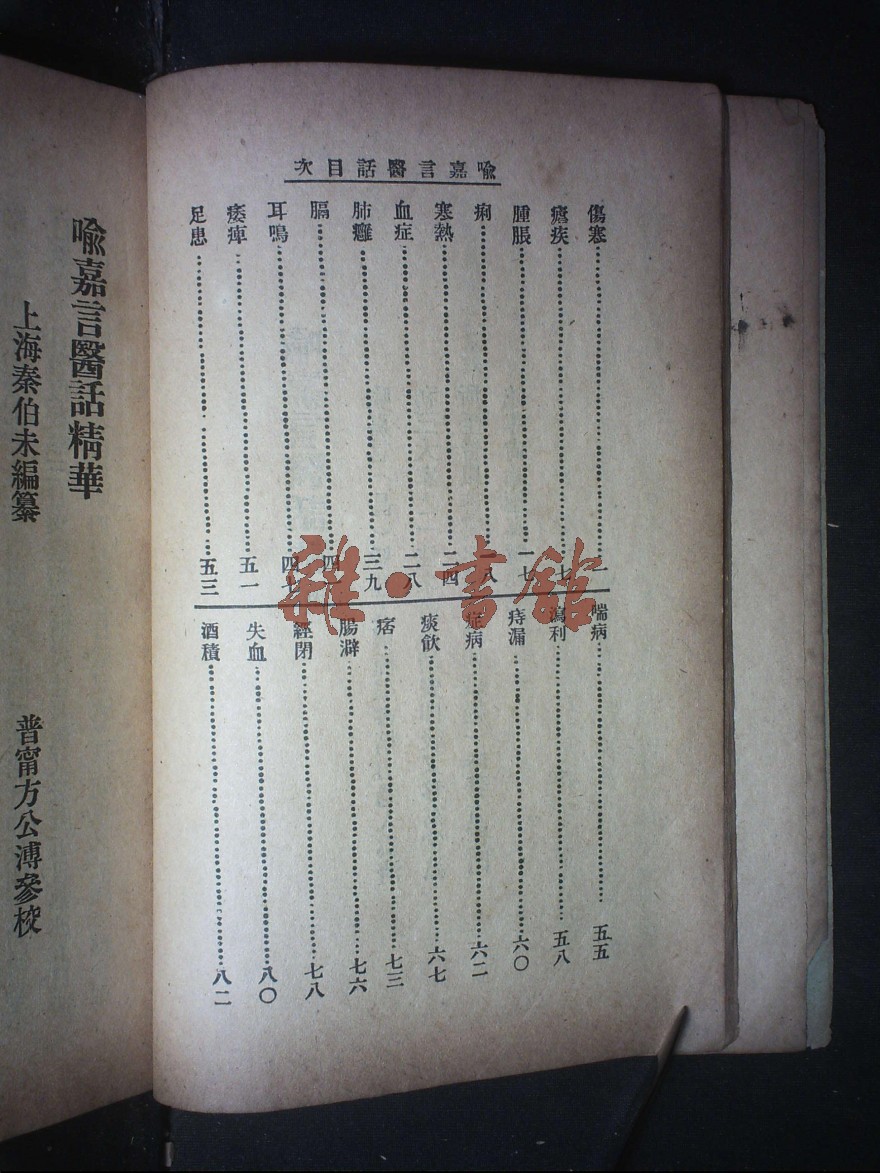 喩嘉言醫話目次
傷寒……一
瘧疾……七
腫脹……一七
痢……一八
寒熱……二四
血症……二八
肺癰……三九
膈……四
耳鳴……四七
痿痺……五一
足患……五三
喘病……五五
瀉利……五八
痔漏……六〇
症病……六二
痰飲……六七
痞……七三
腸澼……七六
經閉……七八
失血……八〇
酒積……八二
喩嘉言醫話精華
上海秦伯未編纂
普甯方公溥參校
雜·書館